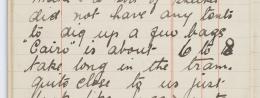 did not have any tents
to dig up a few bags
"Cairo" is about 6 to 8
take long in the tram.
quite close to us just